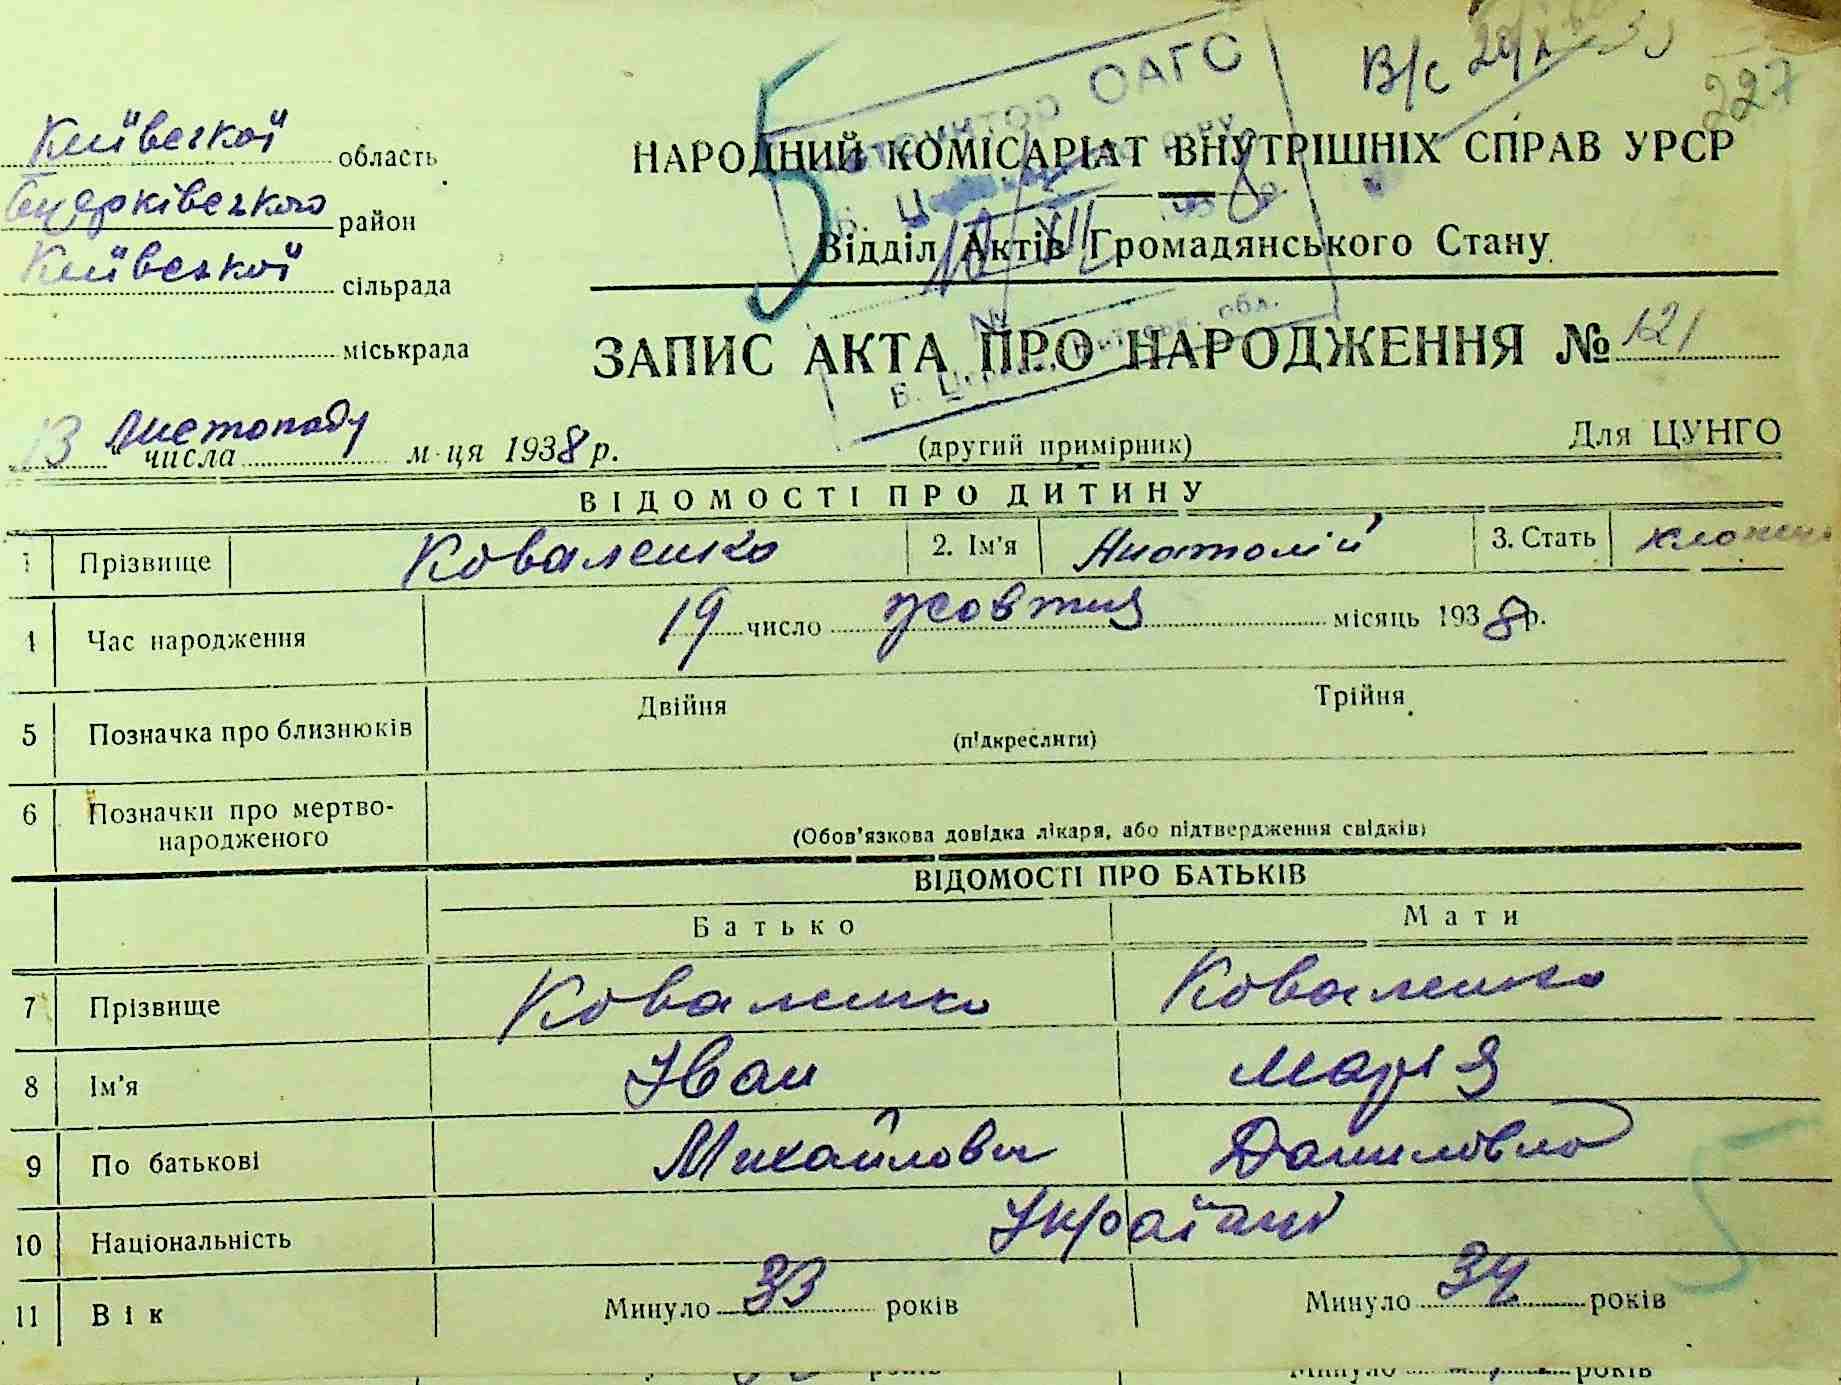 В/с
227
Київської область
район
Київської сільрада
міськрада
ОАГС
Б. Ц
НАРОДНИЙ КОМІСАРІАТ ВНУТРІШНІХ СПРАВ УРСР
Відділ Актів Громадянського Стану
обл.
ЗАПИС АКТА ПРО НАРОДЖЕННЯ № 121
13 числа листопаду м-ця 1938 р.
(другий примірник)
Для ЦУНГО
ВІДОМОСТІ ПРО ДИТИНУ
1 Прізвище Коваленко 2. Ім'я Анатолій 3. Стать
4 Час народження 19 число жовтня місяць 1938 р.
5 Позначка про близнюків Двійня Трійня
(підкреслити)
6 Позначки про мертво-
народженого
(Обов'язкова довідка лікаря, або підтвердження свідків)
ВІДОМОСТІ ПРО БАТЬКІВ
Батько Мати
7 Прізвище Коваленко Коваленко
8 Ім'я Іван Марія
9 По батькові Михайлович Данилівна
10 Національність Українці
11 Вік Минуло 33 років Минуло 34 років
5
5